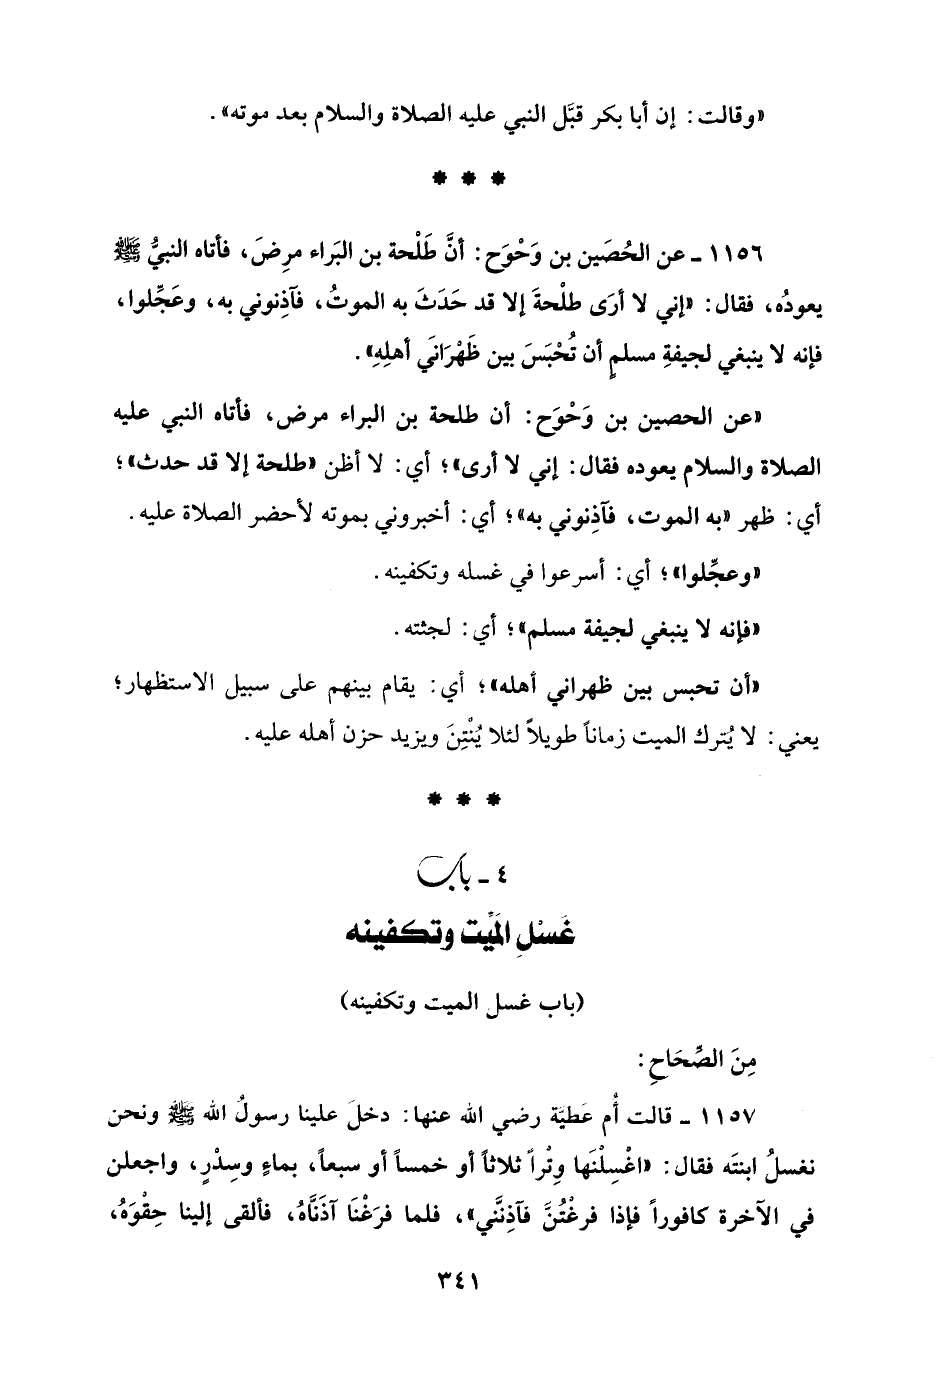 «وقالت: إن أبا بكر قبَّل النبي عليه الصلاة والسلام بعد موته».
* * *
١١٥٦ ـ عن الحُصَين بن وَحْوَح: أنَّ طَلْحة بن البَراء مرِضَ، فأتاه النبيُّ ﷺ
يعودُه، فقال: «إني لا أرَى طلْحةَ إلا قد حَدَثَ به الموتُ، فآذِنوني به، وعَجِّلوا،
فإنه لا ينبغي لجيفةِ مسلمٍ أن تُحْبَسَ بين ظَهْرَانَي أهلِهِ».
«عن الحصين بن وَحْوَح: أن طلحة بن البراء مرض، فأتاه النبي عليه
الصلاة والسلام يعوده فقال: إني لا أرى»؛ أي: لا أظن «طلحة إلا قد حدث»؛
أي: ظهر «به الموت، فآذِنوني به»؛ أي: أخبروني بموته لأحضر الصلاة عليه.
«وعجِّلوا»؛ أي: أسرعوا في غسله وتكفينه.
«فإنه لا ينبغي لجيفة مسلم»؛ أي: لجثته.
«أن تحبس بين ظهراني أهله»؛ أي: يقام بينهم على سبيل الاستظهار؛
يعني: لا يُترك الميت زماناً طويلاً لئلا يُنْتِنَ ويزيد حزن أهله عليه.
* * *
٤ ـ باب
غَسْلِ المَيِّت وتكفينه
(باب غسل الميت وتكفينه)
مِنَ الصِّحَاحِ:
١١٥٧ ـ قالت أُم عَطيَّة رضي الله عنها: دخلَ علينا رسولُ الله ﷺ ونحن
نغسلُ ابنتَه فقال: «اغْسِلْنَها وِتْراً ثلاثاً أو خمساً أو سبعاً، بماءٍ وسِدْرٍ، واجعلن
في الآخرة كافوراً فإذا فرغْتُنَّ فآذِنَّني»، فلما فرَغْنَا آذنَّاهُ، فألقى إلينا حِقْوَهُ،
٣٤١